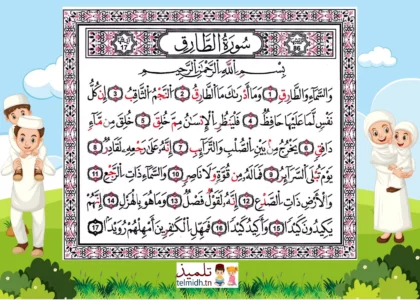 سُورَةُ الطَّارِقِ
بِسْمِ اللَّهِ الرَّحْمَٰنِ الرَّحِيمِ
وَالسَّمَاءِ وَالطَّارِقِ 1 وَمَا أَدْرَىٰكَ مَا الطَّارِقُ 2 النَّجْمُ الثَّاقِبُ 3 إِن كُلُّ
نَفْسٍ لَّمَا عَلَيْهَا حَافِظٌ 4 فَلْيَنظُرِ الْإِنسَٰنُ مِمَّ خُلِقَ 5 خُلِقَ مِن مَّاءٍ
دَافِقٍ 6 يَخْرُجُ مِن بَيْنِ الصُّلْبِ وَالتَّرَائِبِ 7 إِنَّهُ عَلَىٰ رَجْعِهِ لَقَادِرٌ 8
يَوْمَ تُبْلَى السَّرَائِرُ 9 فَمَا لَهُ مِن قُوَّةٍ وَلَا نَاصِرٍ 10 وَالسَّمَاءِ ذَاتِ الرَّجْعِ 11
وَالْأَرْضِ ذَاتِ الصَّدْعِ 12 إِنَّهُ لَقَوْلٌ فَصْلٌ 13 وَمَا هُوَ بِالْهَزْلِ 14 إِنَّهُمْ
يَكِيدُونَ كَيْدًا 15 وَأَكِيدُ كَيْدًا 16 فَمَهِّلِ الْكَٰفِرِينَ أَمْهِلْهُمْ رُوَيْدًا 17
تلميذ
telmidh.tn